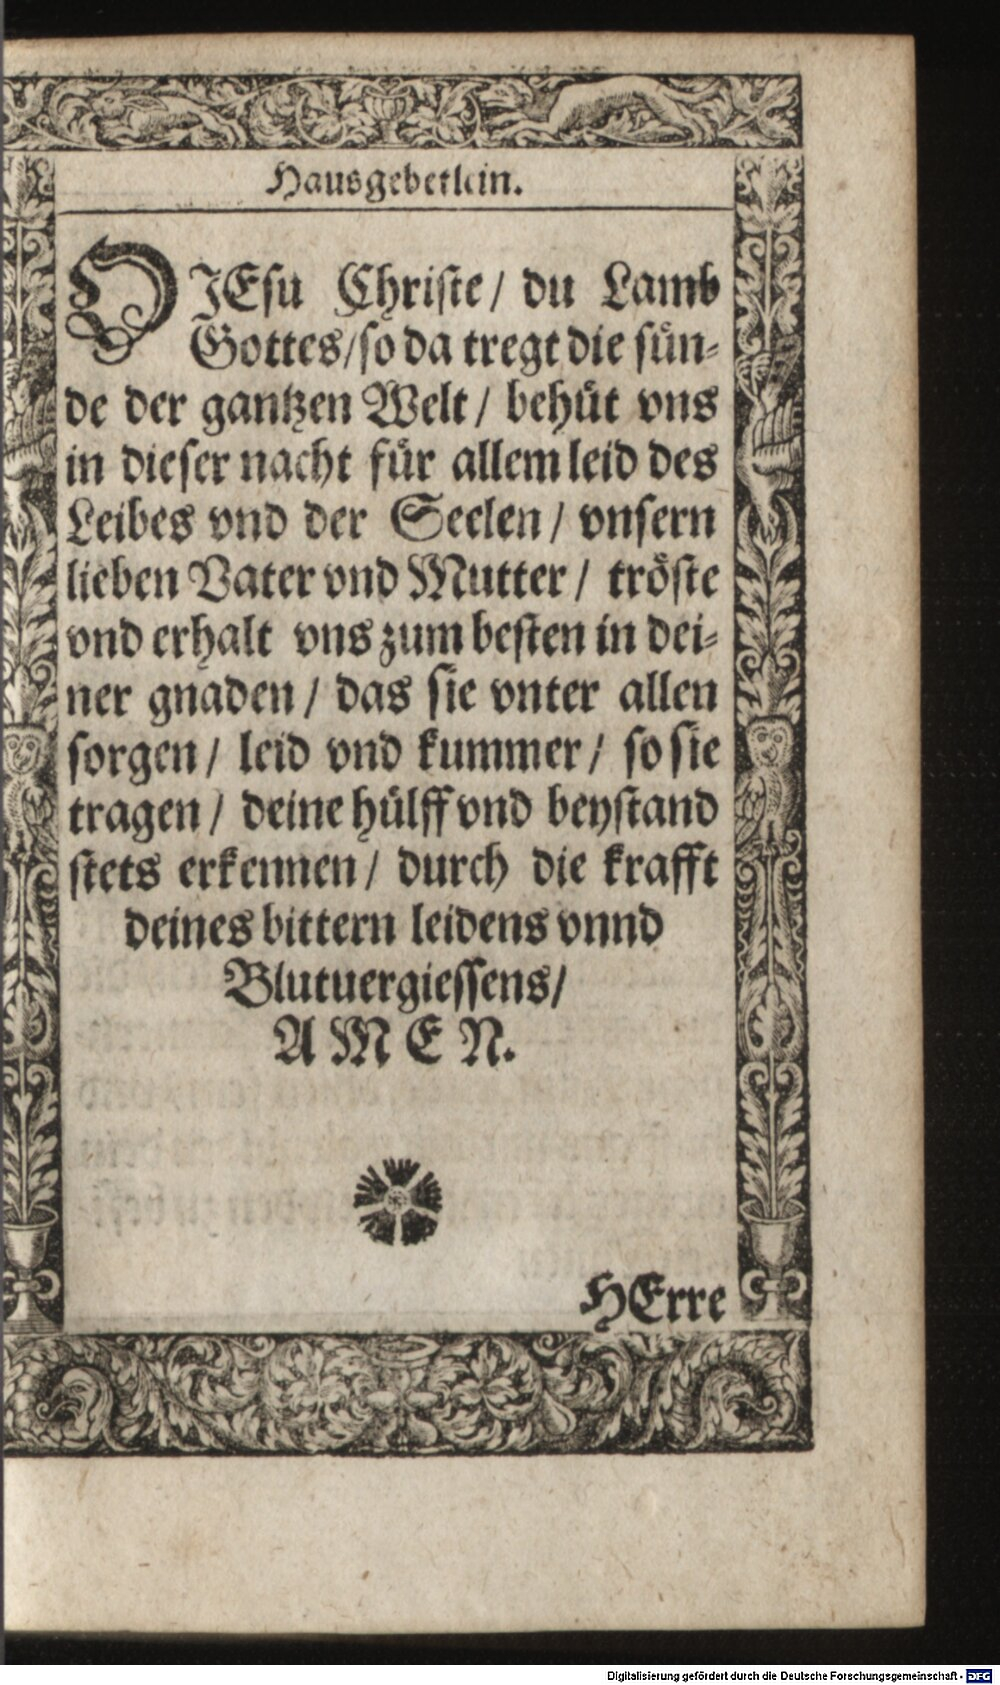 Hausgebetlein.
O JEsu Christe / du Lamb
Gottes / so da tregt die sün-
de der gantzen Welt / behüt vns
in dieser nacht für allem leid des
Leibes vnd der Seelen / vnsern
lieben Vater vnd Mutter / tröste
vnd erhalt vns zum besten in dei-
ner gnaden / das sie vnter allen
sorgen / leid vnd kummer / so sie
tragen / deine hülff vnd beystand
stets erkennen / durch die krafft
deines bittern leidens vnnd
Blutuergiessens /
AMEN.
HErre
Digitalisierung gefördert durch die Deutsche Forschungsgemeinschaft - DFG